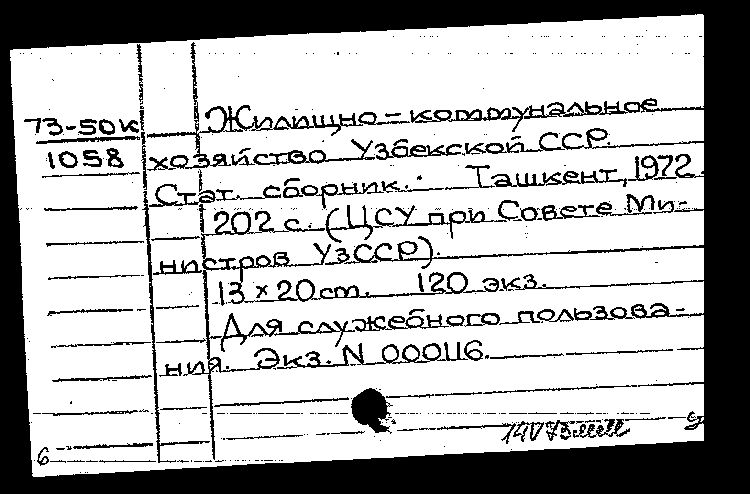 73-50к Жилищно-коммунальное
1058 хозяйство Узбекской ССР.
Стат. сборник. Ташкент, 1972.
202 с. (ЦСУ при Совете Ми-
нистров УзССР).
13 × 20 cm. 120 экз.
Для служебного пользова-
ния. Экз. N 000116.
6